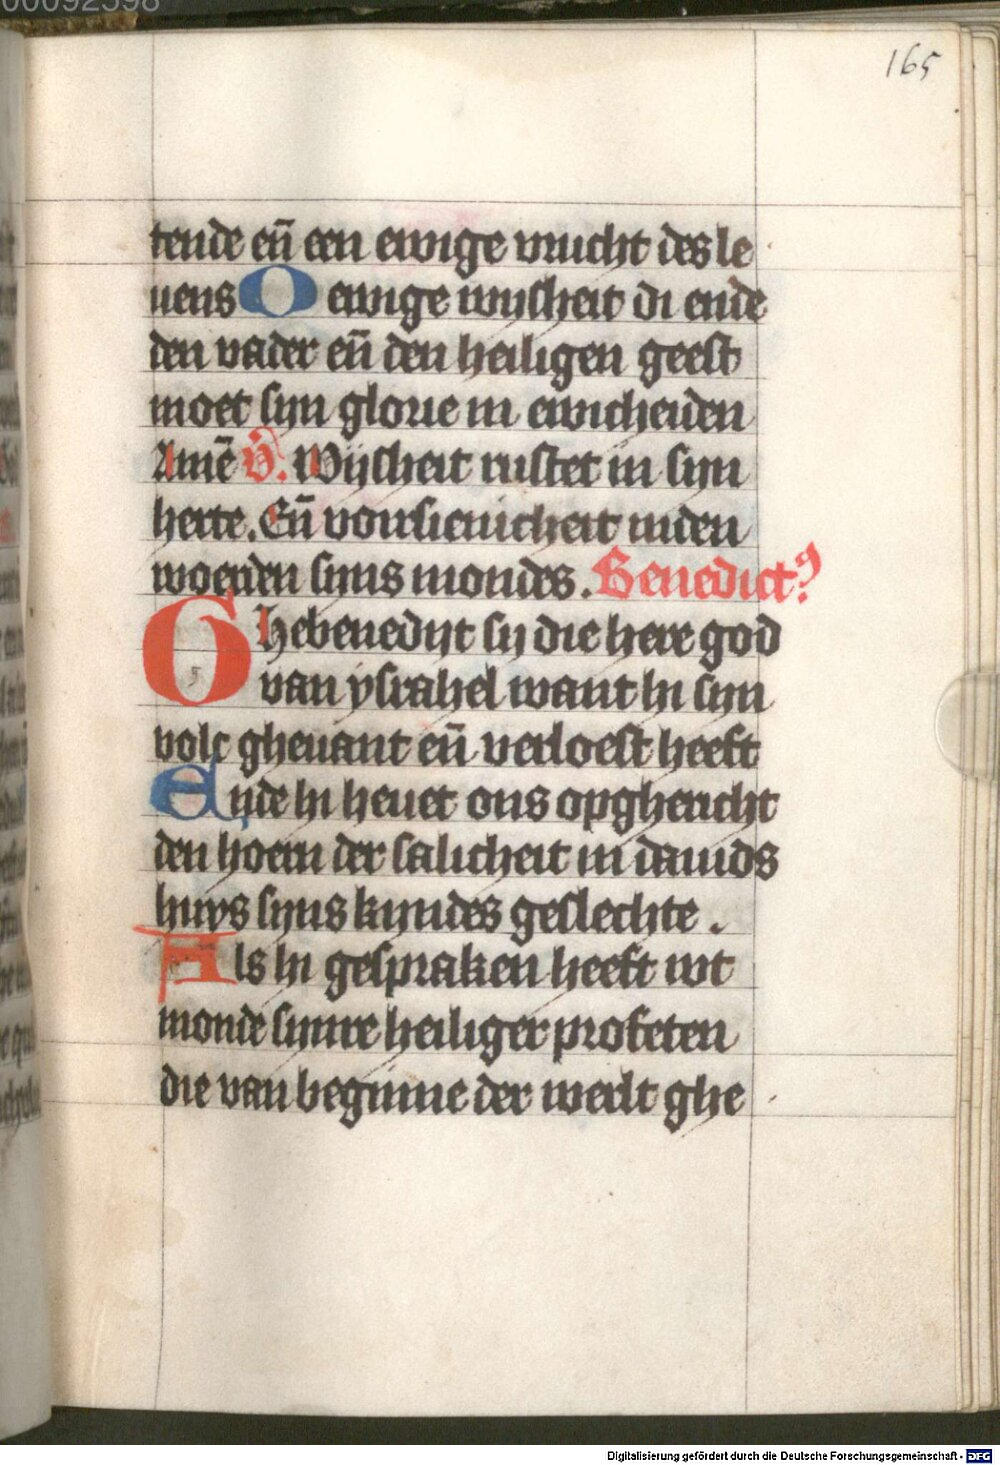 165
tende eñ een ewige vrucht des le
uens O ewige wijsheit di ende
den vader eñ den heiligen geest
moet sijn glorie in ewicheiden
Amē V̉. Wijsheit rustet in sijn
herte. Eñ voirsienicheit inden
woerden sijns mondes. Benedictꝰ
Ghebenedijt sij die here god
van ysrahel want hi sijn
volc gheuant eñ verloest heeft
Ende hi heuet ons opghericht
den hoern der salicheit in dauids
huys sijns kyndes geslechte.
Als hi gespraken heeft wt
monde sijnre heiliger profeten
die van beginne der werlt ghe
Digitalisierung gefördert durch die Deutsche Forschungsgemeinschaft - DFG